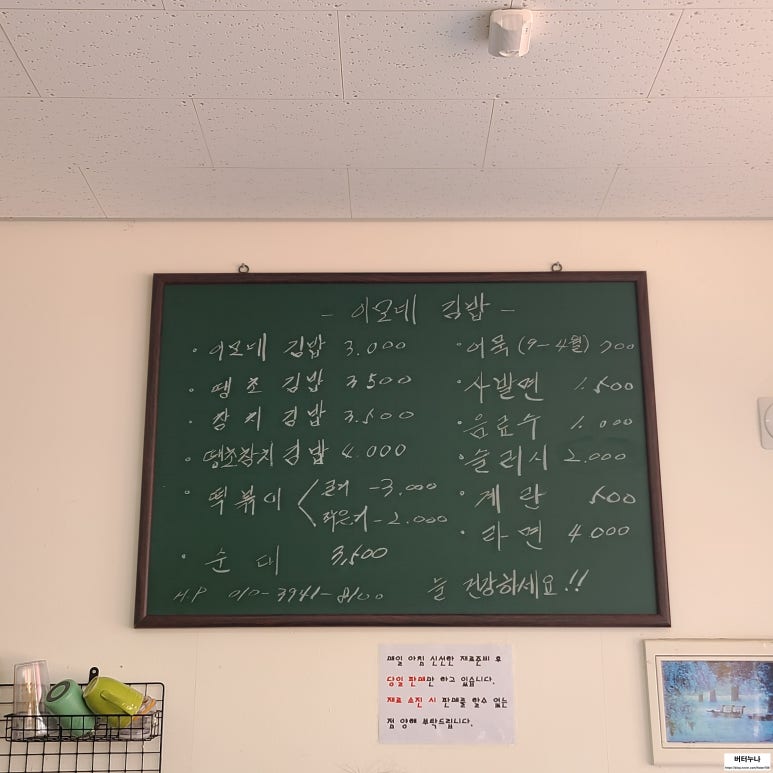 - 이모네 김밥 -
· 이모네 김밥 3.000
· 땡초 김밥 3500
· 참치 김밥 3.500
· 땡초참치 김밥 4.000
· 떡볶이 < 큰거 - 3.000
작은거 - 2.000
· 순대 3,500
HP 010-3941-8100
· 어묵 (9-4월) 700
· 사발면 1.500
· 음료수 1.000
· 슬러시 2.000
· 계란 500
· 라면 4000
늘 건강하세요!!
매일 아침 신선한 재료준비 후
당일 판매만 하고 있습니다.
재료 소진 시 판매를 할수 없는
점 양해 부탁드립니다.
버터누나